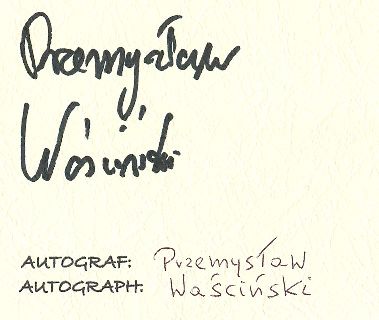 Przemysław
Waściński
AUTOGRAF: Przemysław
AUTOGRAPH: Waściński